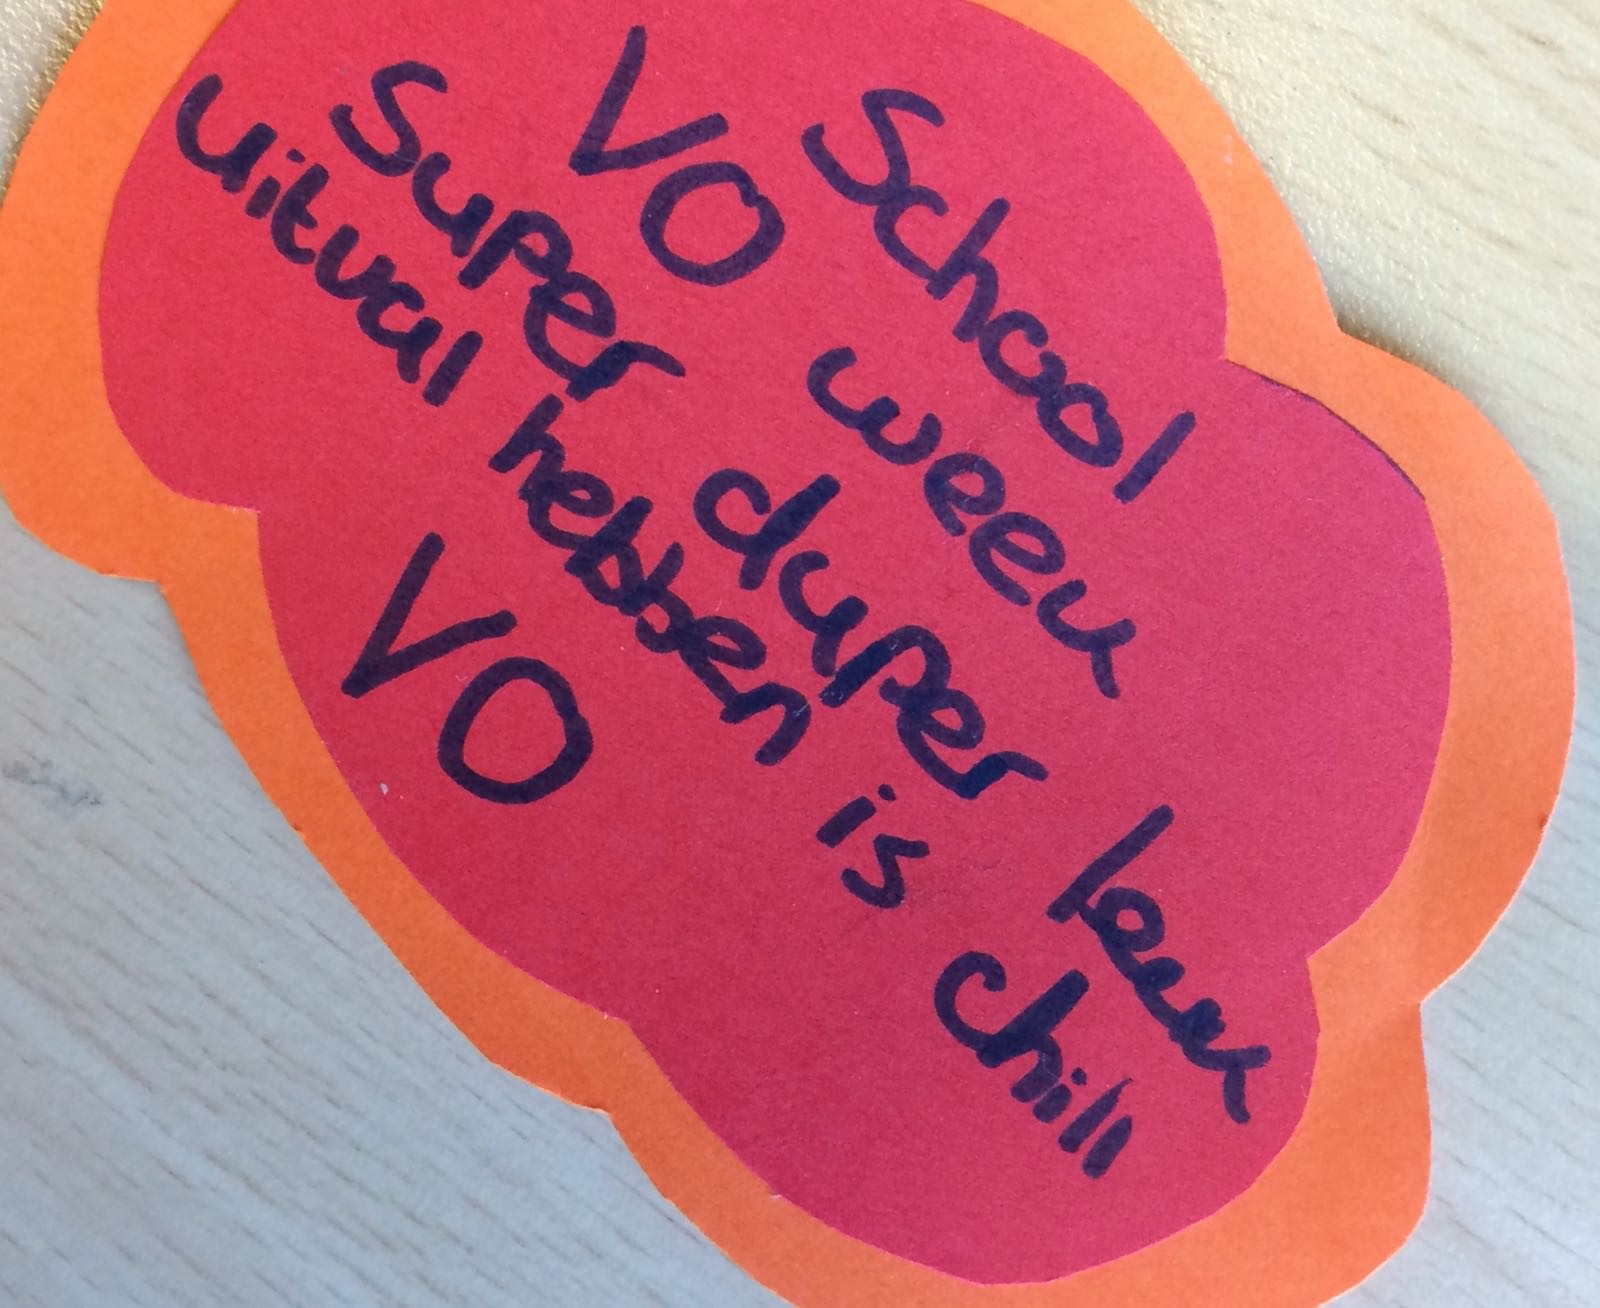 School
VO week
Super duper leuk
uitval hebben is chill
VO